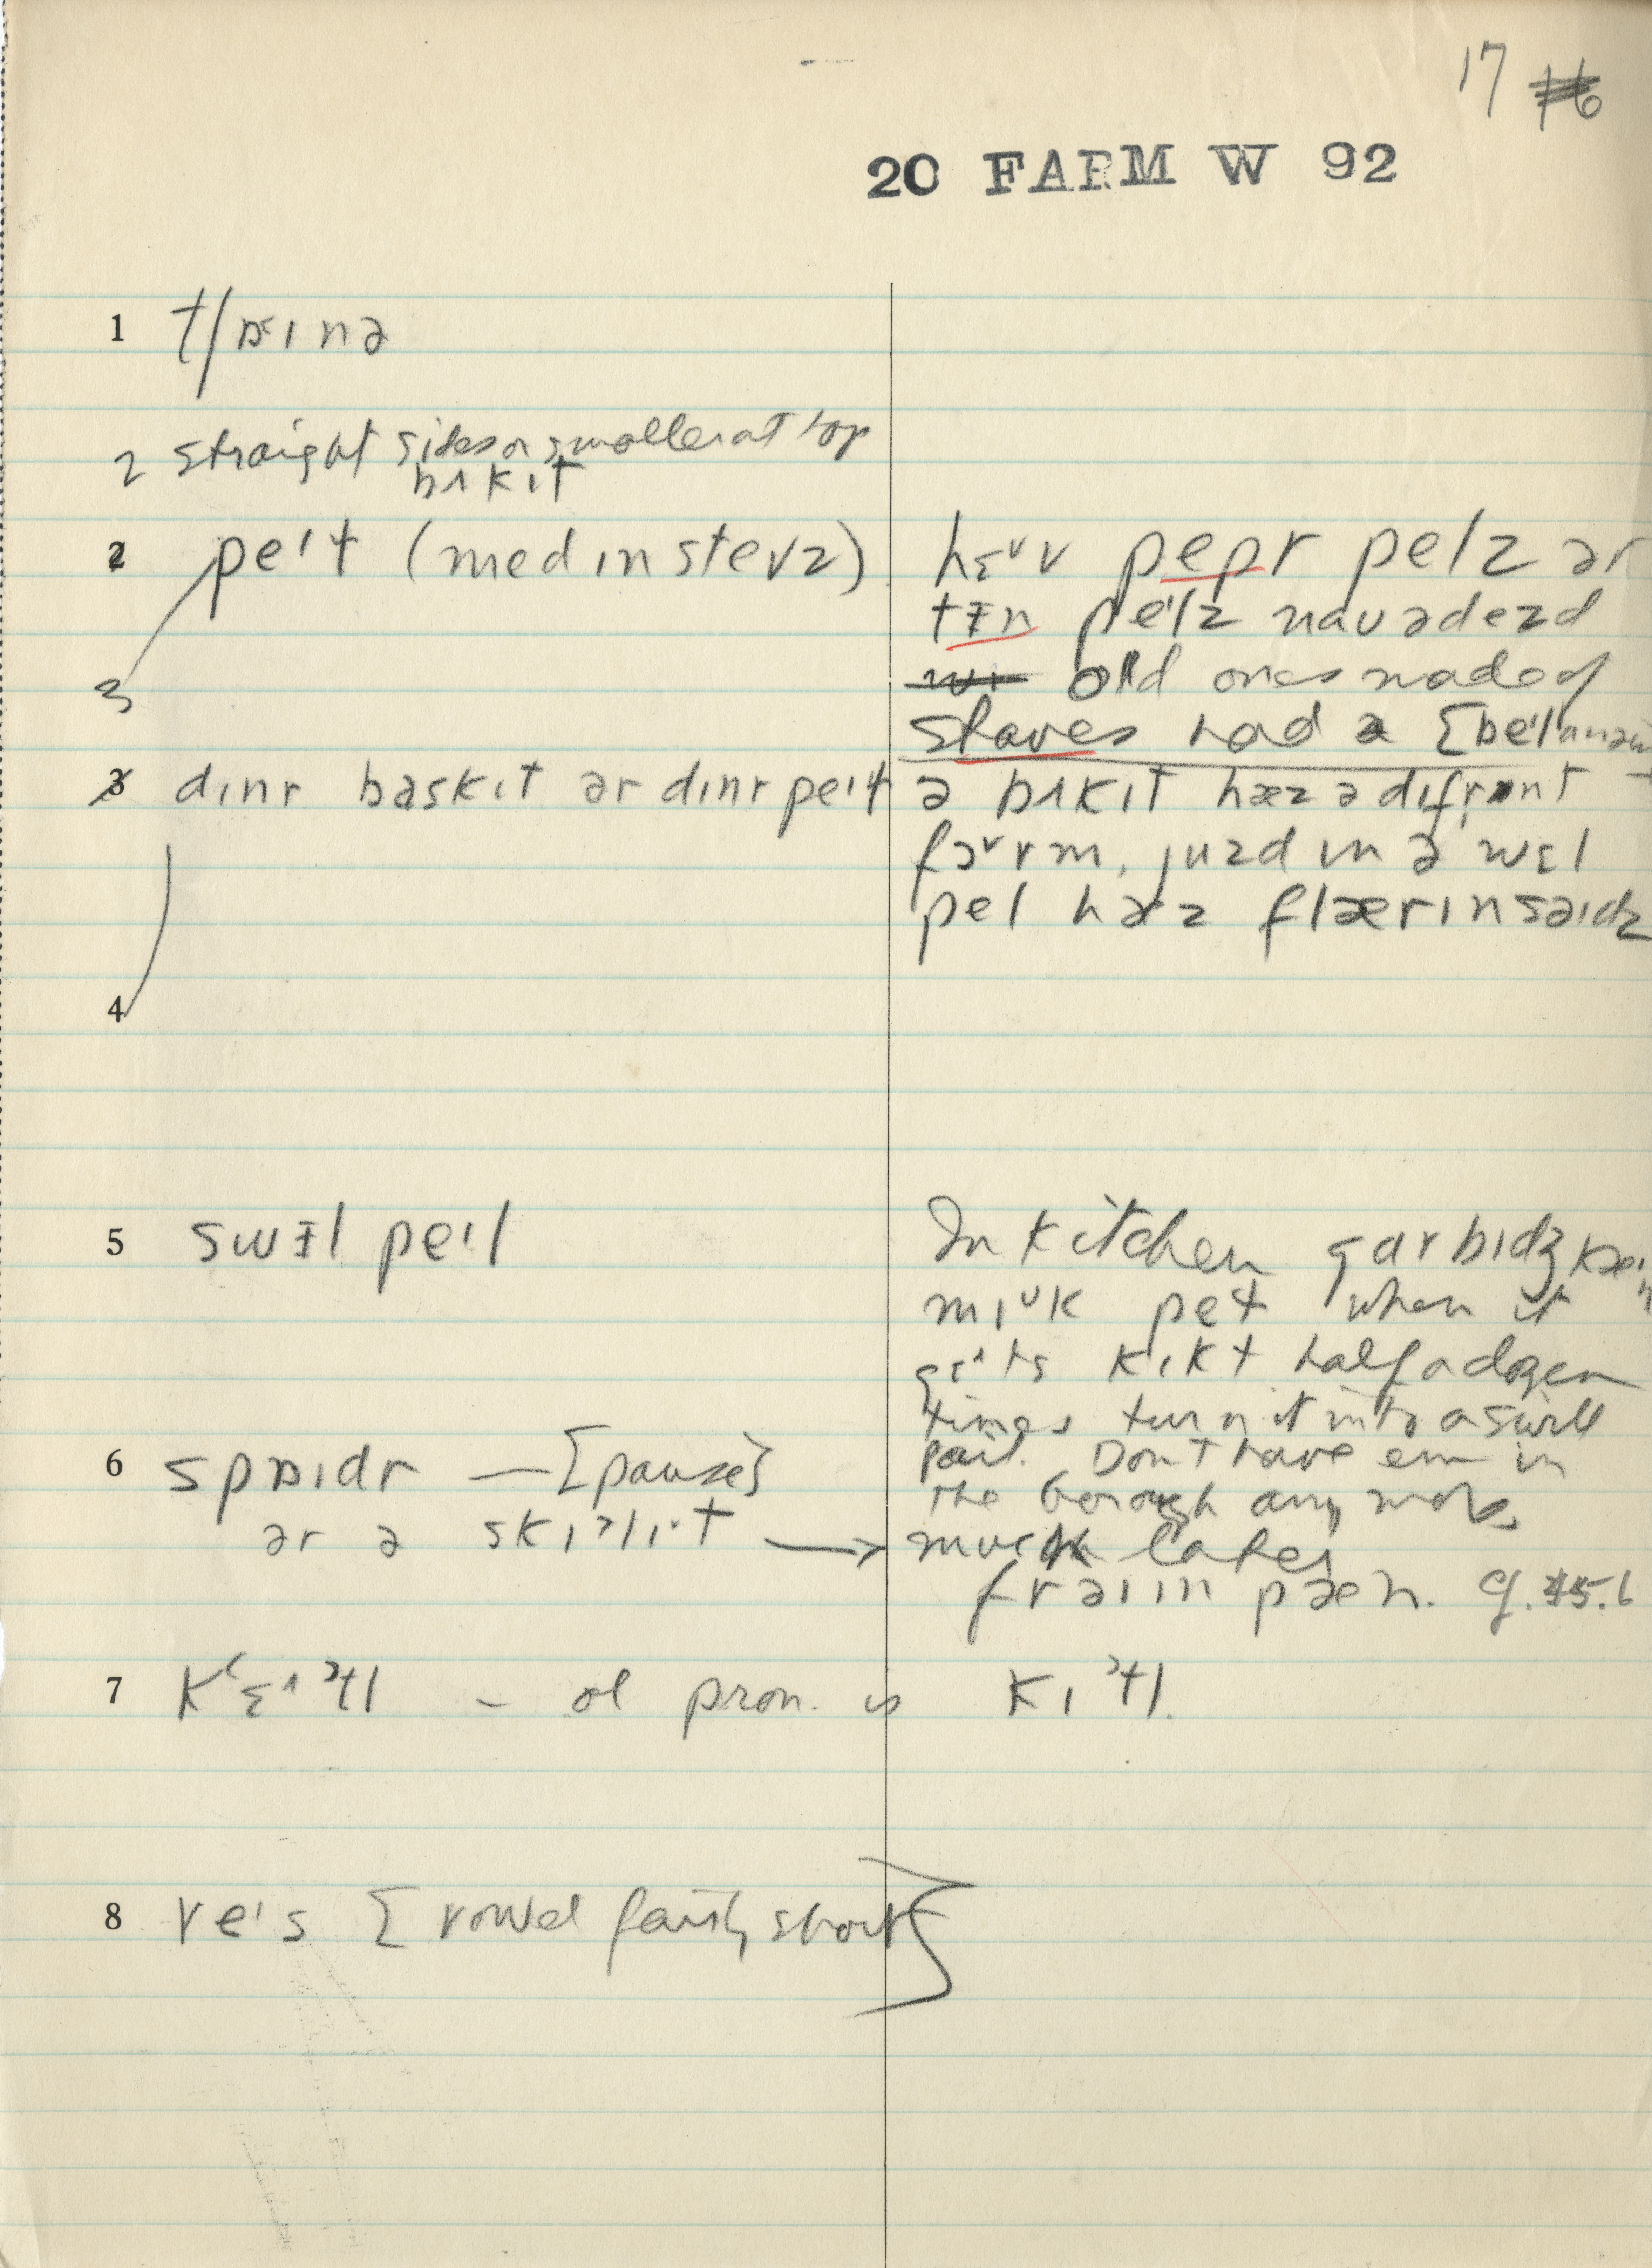 17 16
20 FARM W 92
1 tʃɒɪnə
2 straight sides or smaller at top
bʌkɪt
2 peɪɫ (med ɪn stevz)
hɛᵛv pepr pelz ər
tɪn peɪlz nauədezd
3 old ones made of
staves had a
3 dɪnr baskɪt ər dɪnr peɪɫ
ə bʌkɪt hæz ə dɪfrənt
fɔᵛrm, juzd ɪn ə wɛl
pel hæz flærɪn saɪdz
4
5 swɪl peɪl
In kitchen garbɪdʒ kæɪn
mɪᵘk peɫ when it
gɛᶦts kɪkt half a dozen
times turn it into a swill
pail. Don't have em in
the borough any more
6 spɒɪdr — [pause]
ər ə skɪˀlɪ·t →
much later
fraɪɪn pæn. cf. 15.6
7 kʻɛᶦˀtl – ol pron. is kɪˀtl.
8 veˈs [vowel fairly short]